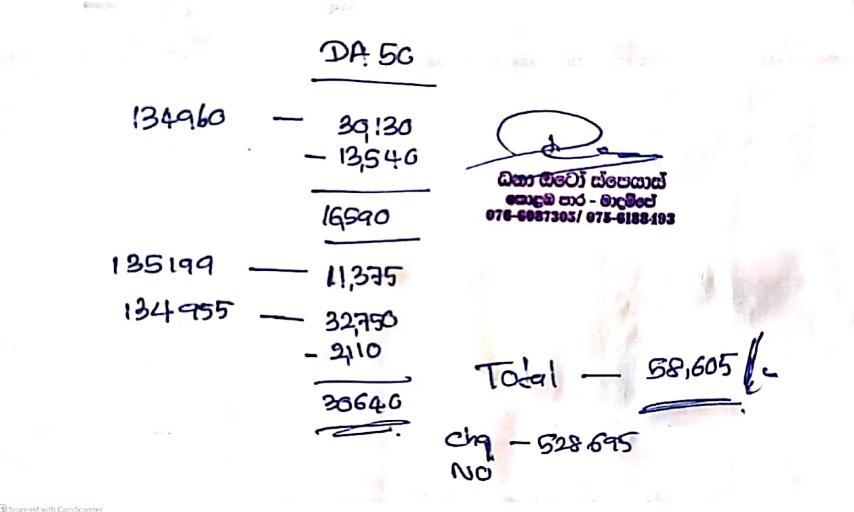 DA 50
134960 — 30,130
- 13,540
16,590
135199 — 11,375
134955 — 32,750
- 2,110
30640
ධනා ඔටෝ ස්පෙයාස්
කොළඹ පාර - මාදම්පේ
076-6087303/ 075-6188493
Total — 58,605/-
Chq — 528695
NO
Scanned with CamScanner